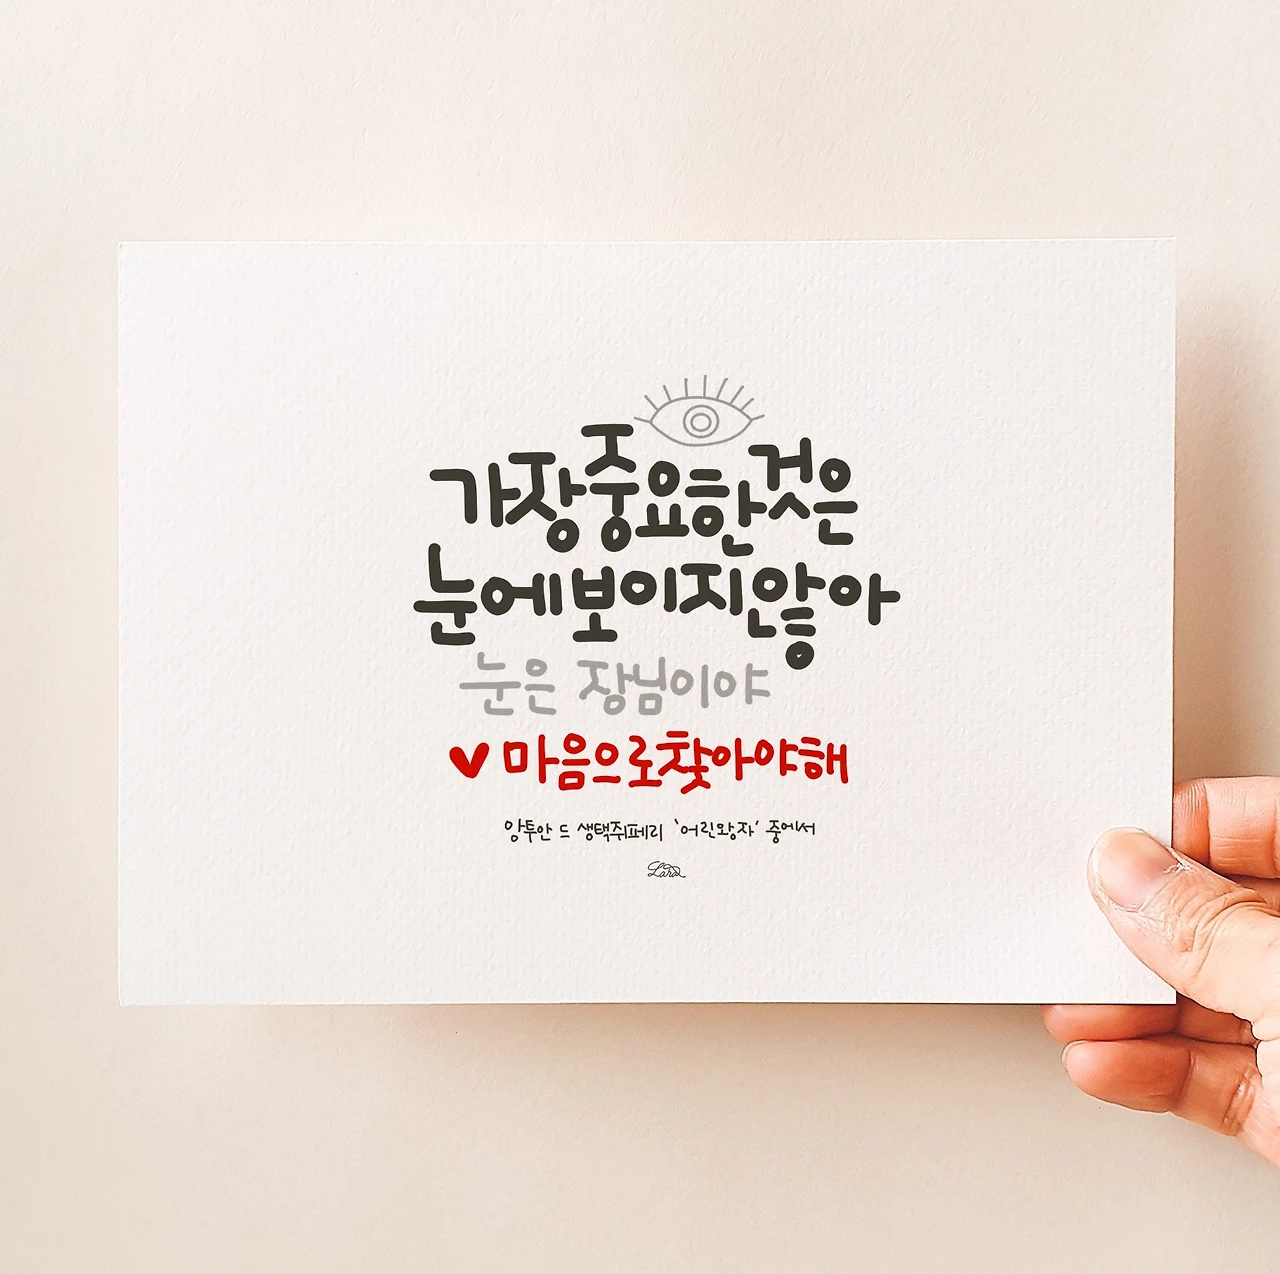 가장중요한것은
눈에보이지않아
눈은 장님이야
마음으로찾아야해
앙투안 드 생택쥐페리 '어린왕자' 중에서
Lara